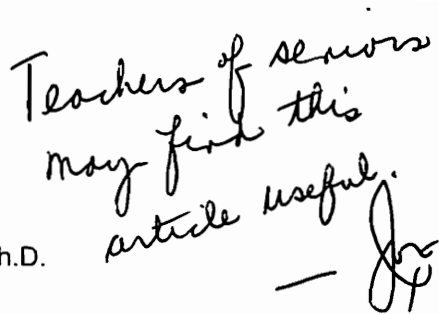 Teachers of seniors
may find this
article useful.
h.D.
— Joe